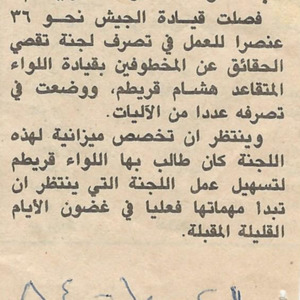 فصلت قيادة الجيش نحو ٣٦
عنصرا للعمل في تصرف لجنة تقصي
الحقائق عن المخطوفين بقيادة اللواء
المتقاعد هشام قريطم، ووضعت في
تصرفه عددا من الآليات.
وينتظر ان تخصص ميزانية لهذه
اللجنة كان طالب بها اللواء قريطم
لتسهيل عمل اللجنة التي ينتظر ان
تبدأ مهماتها فعليا في غضون الأيام
القليلة المقبلة.